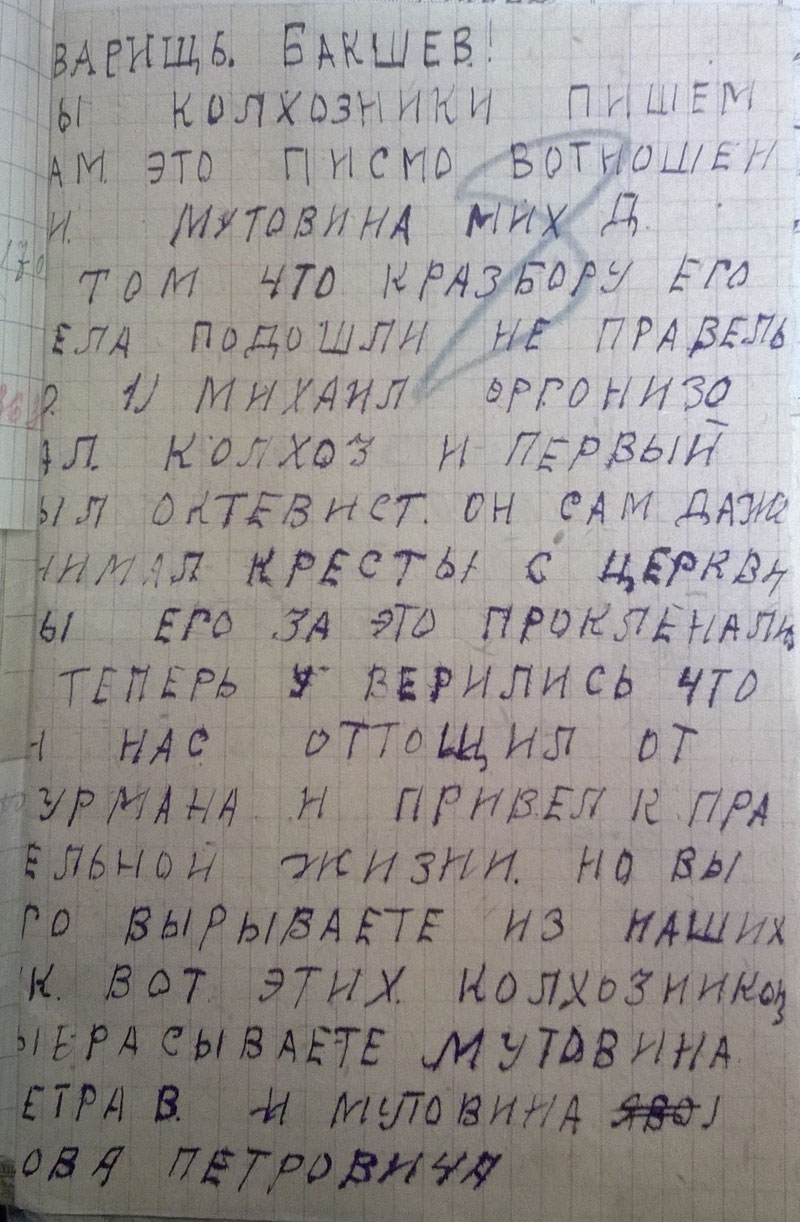 ВАРИЩЬ. БАКШЕВ!
Ы КОЛХОЗНИКИ ПИШЕМ
АМ. ЭТО ПИСМО ВОТНОШЕН
И. МУТОВИНА МИХ Д.
ТОМ ЧТО КРАЗБОРУ ЕГО
ЕЛА ПОДОШЛИ НЕ ПРАВЕЛЬ
О. 1) МИХАИЛ ОРГОНИЗО
АЛ. КОЛХОЗ И ПЕРВЫЙ
ЫЛ ОКТЕВИСТ. ОН САМ ДАЖЕ
НИМАЛ КРЕСТЫ С ЦЕРКВИ
Ы ЕГО ЗА ЭТО ПРОКЛЕНАЛИ
ТЕПЕРЬ У ВЕРИЛИСЬ ЧТО
Н НАС ОТТОЩИЛ ОТ
УРМАНА И ПРИВЕЛ К ПРА
ЕЛЬНОЙ ЖИЗНИ. НО ВЫ
ГО ВЫРЫВАЕТЕ ИЗ НАШИХ
К. ВОТ ЭТИХ. КОЛХОЗНИКОВ
ЫБРАСЫВАЕТЕ МУТОВИНА
ЕТРА В. И МУТОВИНА
ОВА ПЕТРОВИЧА